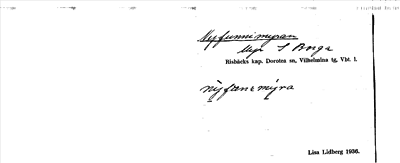 Nyfunnimyran
Myr S Borga
Risbäcks kap. Dorotea sn, Vilhelmina tg, Vbt. l.
Lisa Lidberg 1936.